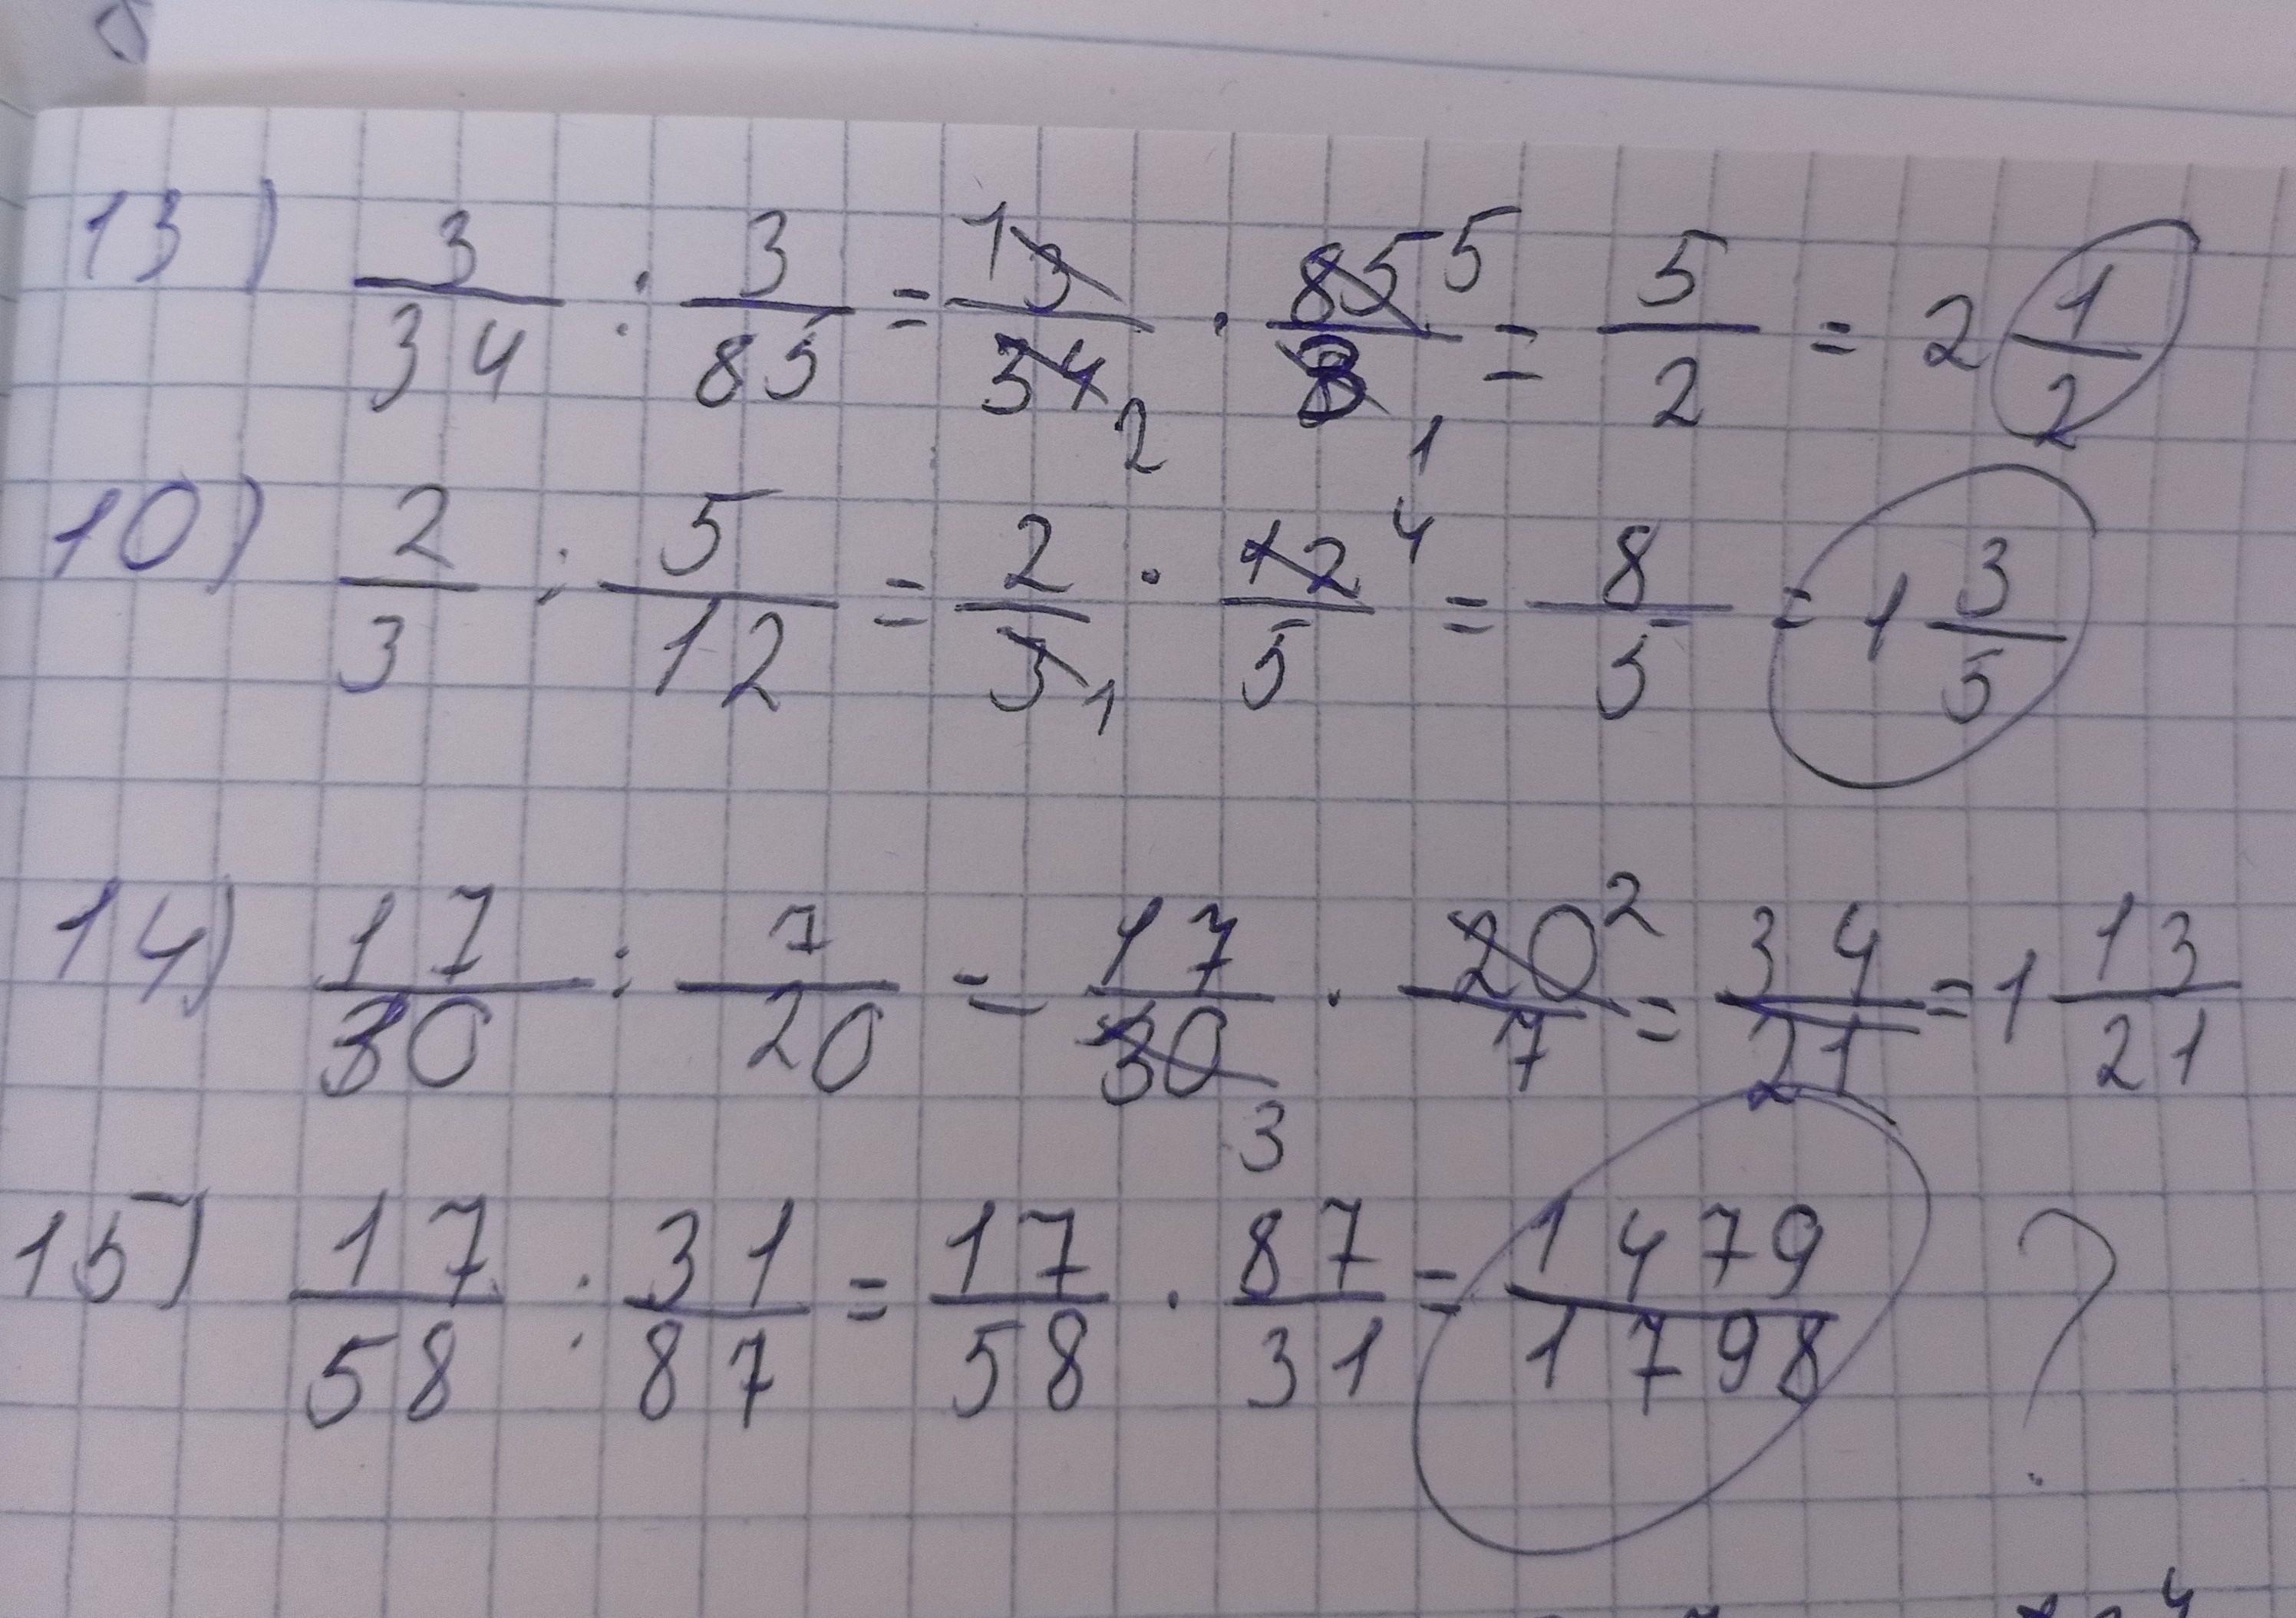 13) 3/34 : 3/85 = 1 3/34 2 · 85/3 5 1 = 5/2 = 2 1/2
10) 2/3 : 5/12 = 2/3 1 · 12/5 4 = 8/5 = 1 3/5
14) 17/30 : 7/20 = 17/30 3 · 20/7 2 = 34/21 = 1 13/21
15) 17/58 : 31/87 = 17/58 · 87/31 = 1479/1798 ?